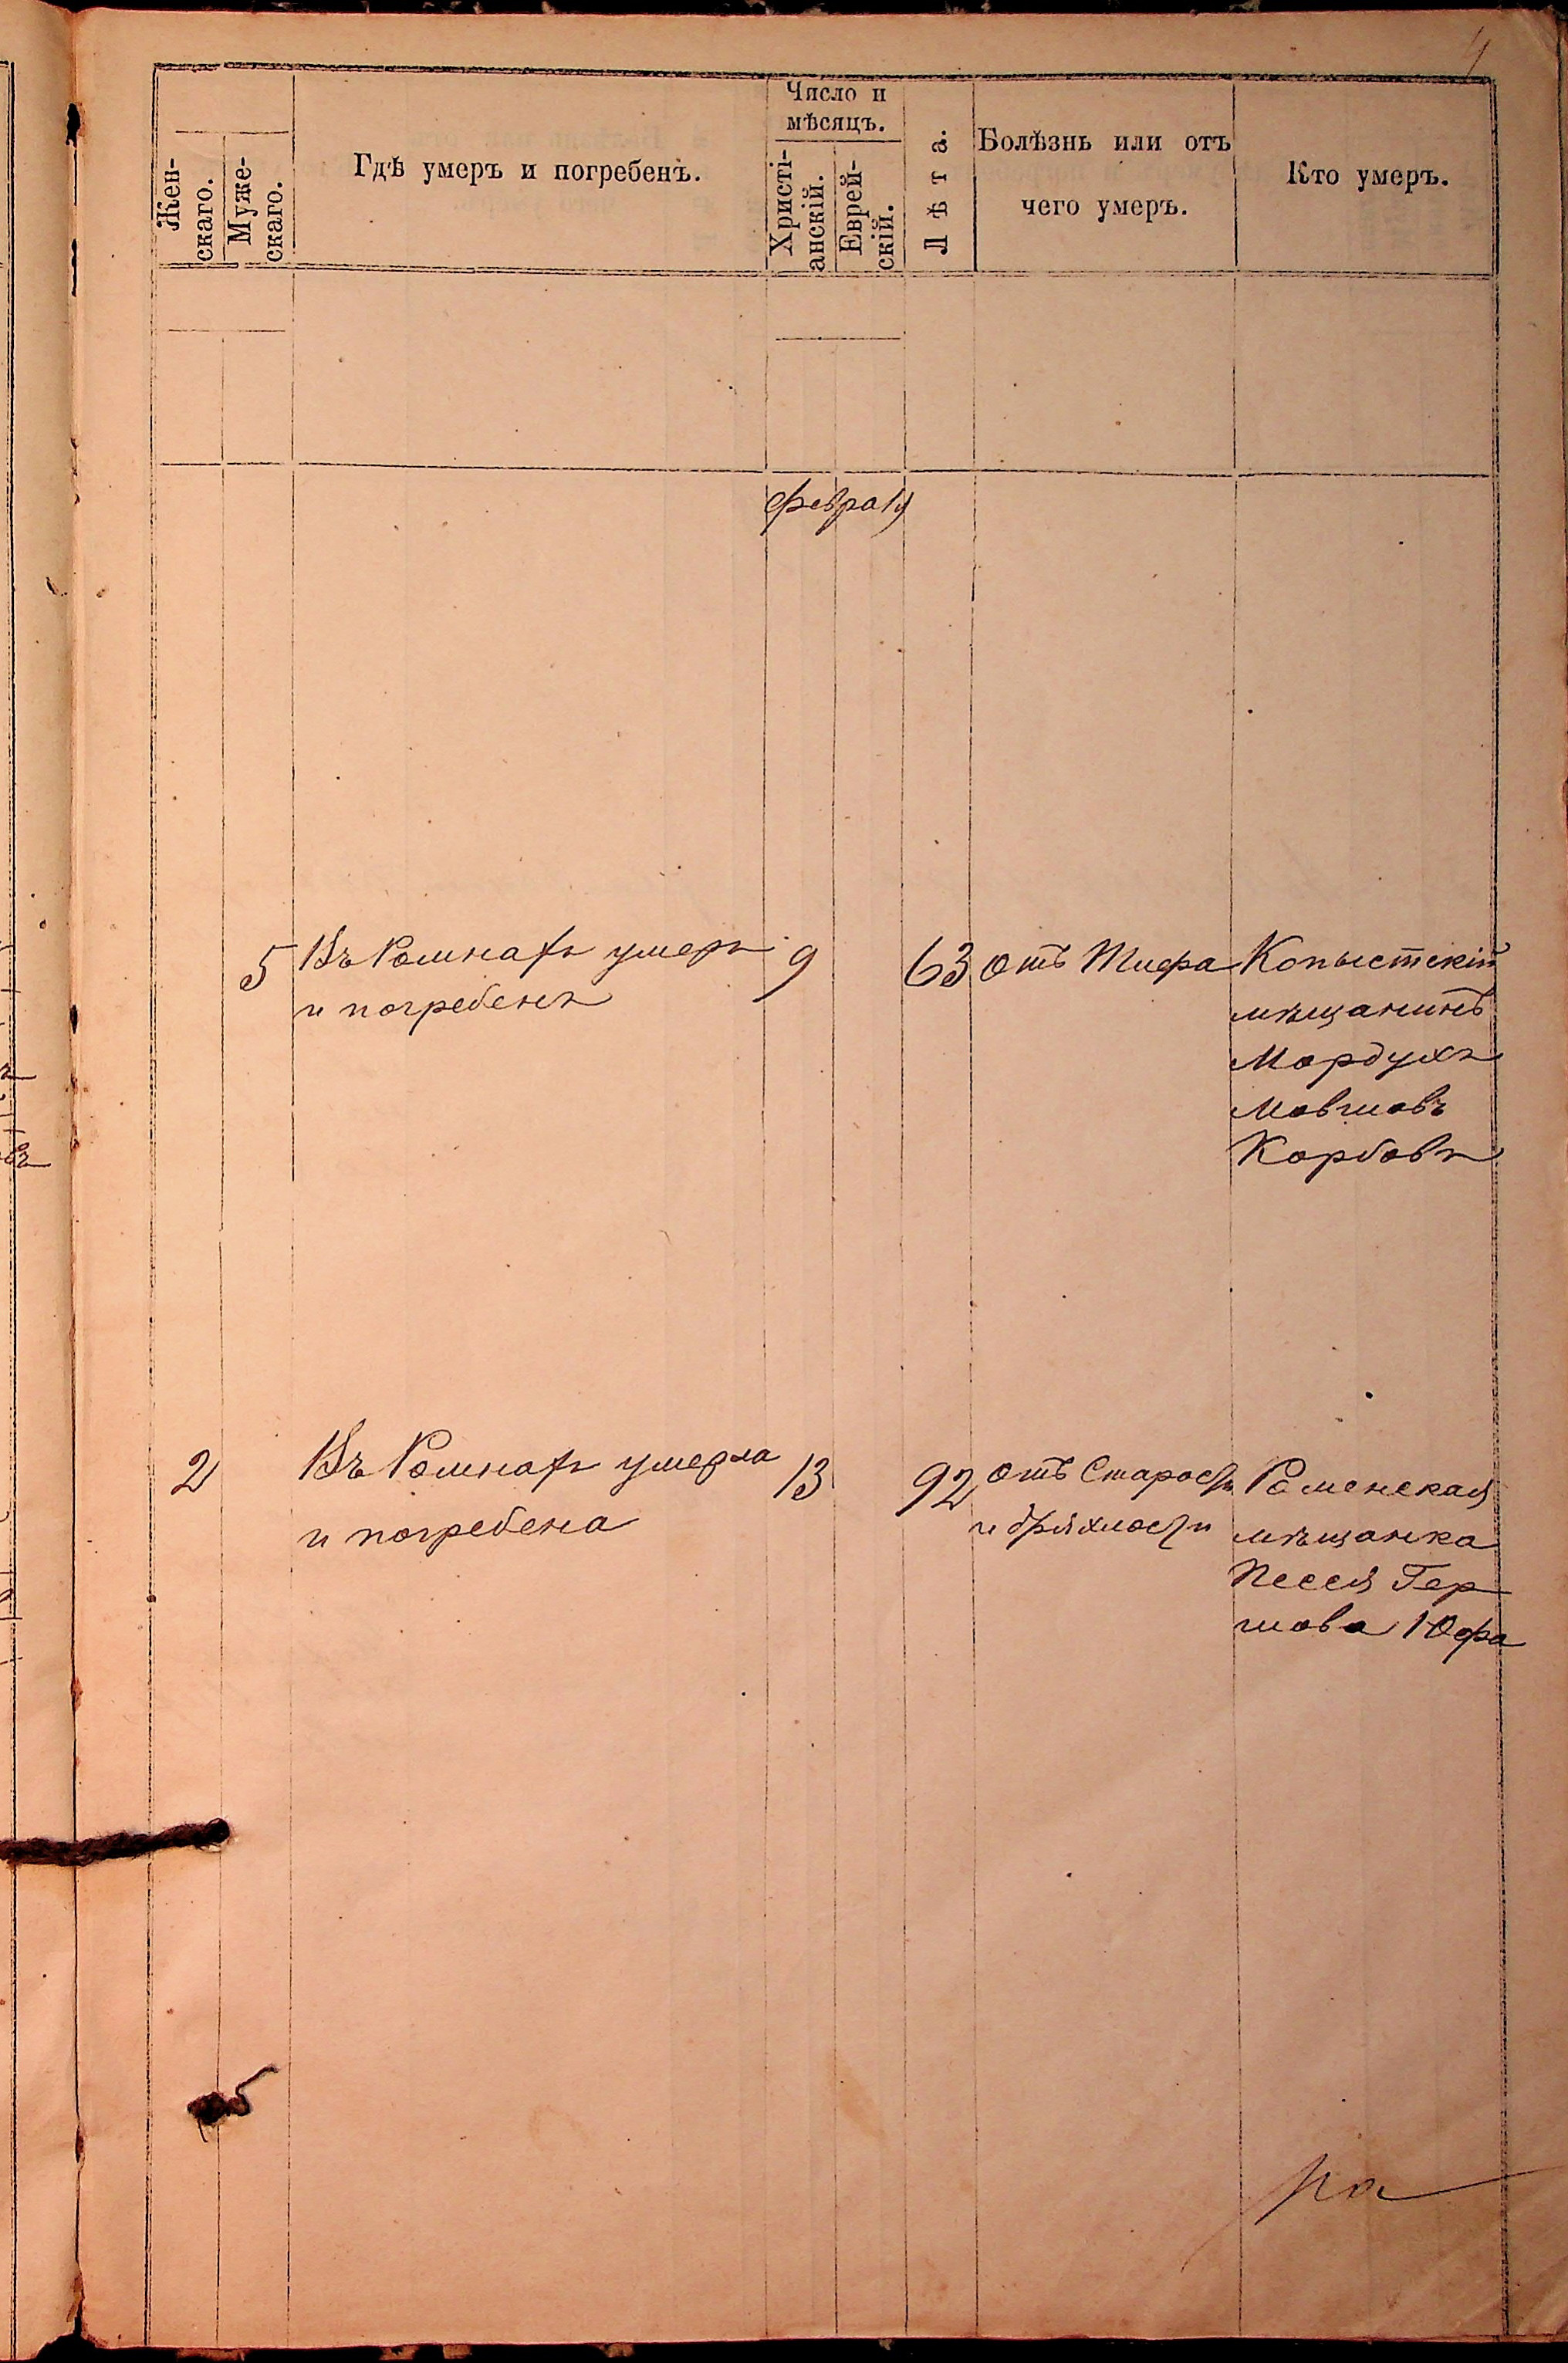 4
Число и
мѣсяцъ.
Жен-
скаго.
Муже-
скаго.
Гдѣ умеръ и погребенъ.
Христі-
анскій.
Еврей-
скій.
Лѣта.
Болѣзнь или отъ
чего умеръ.
Кто умеръ.
Февраля
5 Въ Ромнахъ умеръ 9 63 отъ Тифа Копыстскій
и погребенъ мѣщанинъ
Мордухъ
Мовшовъ
Корбовъ
2 Въ Ромнахъ умерла 13 92 отъ Старости Роменская
и погребена и дряхлости мѣщанка
Песся Гер
шова Юфа